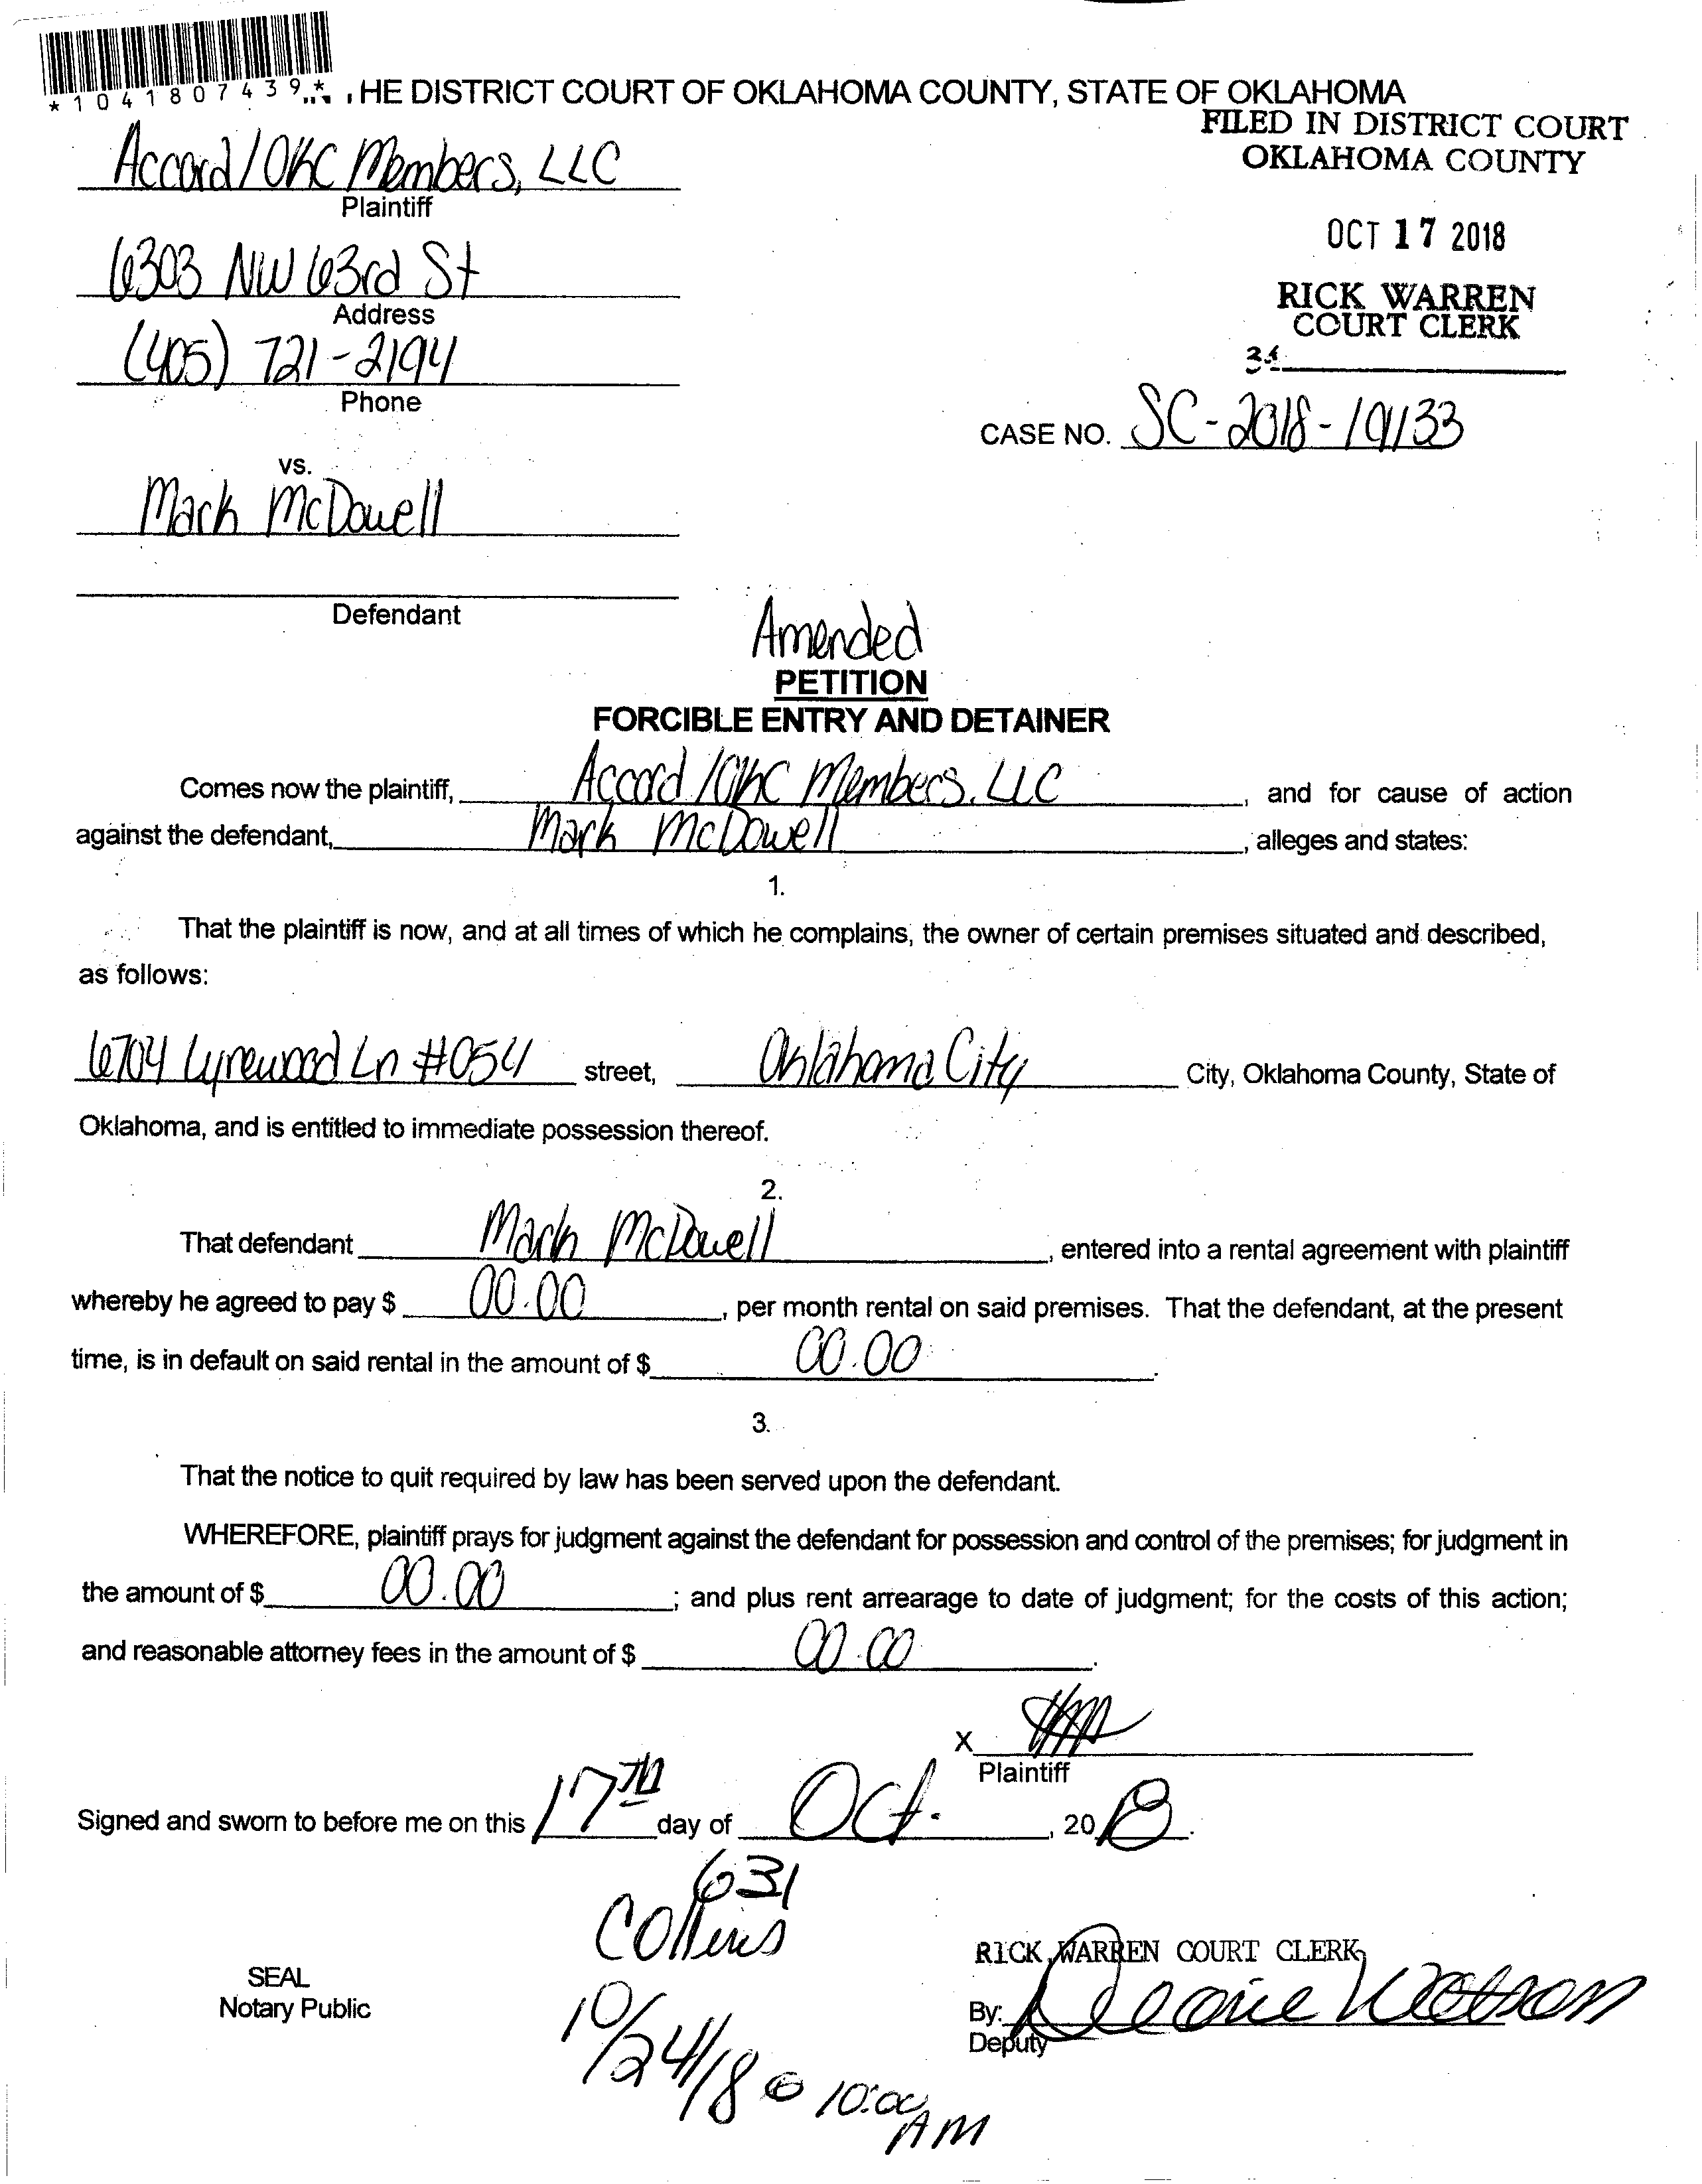 *1041807439*
HE DISTRICT COURT OF OKLAHOMA COUNTY, STATE OF OKLAHOMA
FILED IN DISTRICT COURT
OKLAHOMA COUNTY
Accord/OKC Members, LLC
Plaintiff
OCT 17 2018
6303 NW 63rd St
Address
RICK WARREN
COURT CLERK
(405) 721-2194
Phone
CASE NO. SC-2018-19133
vs.
Mark McDowell
Defendant
Amended
PETITION
FORCIBLE ENTRY AND DETAINER
Comes now the plaintiff, Accord/OKC Members, LLC, and for cause of action
against the defendant, Mark McDowell, alleges and states:
1.
That the plaintiff is now, and at all times of which he complains, the owner of certain premises situated and described,
as follows:
6704 Lyrewood Ln #054 street, Oklahoma City City, Oklahoma County, State of
Oklahoma, and is entitled to immediate possession thereof.
2.
That defendant Mark McDowell, entered into a rental agreement with plaintiff
whereby he agreed to pay $ 00.00, per month rental on said premises. That the defendant, at the present
time, is in default on said rental in the amount of $ 00.00.
3.
That the notice to quit required by law has been served upon the defendant.
WHEREFORE, plaintiff prays for judgment against the defendant for possession and control of the premises; for judgment in
the amount of $ 00.00; and plus rent arrearage to date of judgment; for the costs of this action;
and reasonable attorney fees in the amount of $ 00.00.
X
Plaintiff
Signed and sworn to before me on this 17TH day of Oct., 2018.
631
Collins
RICK WARREN COURT CLERK
SEAL
Notary Public
By:
Deputy
10/24/18 @ 10:00
AM